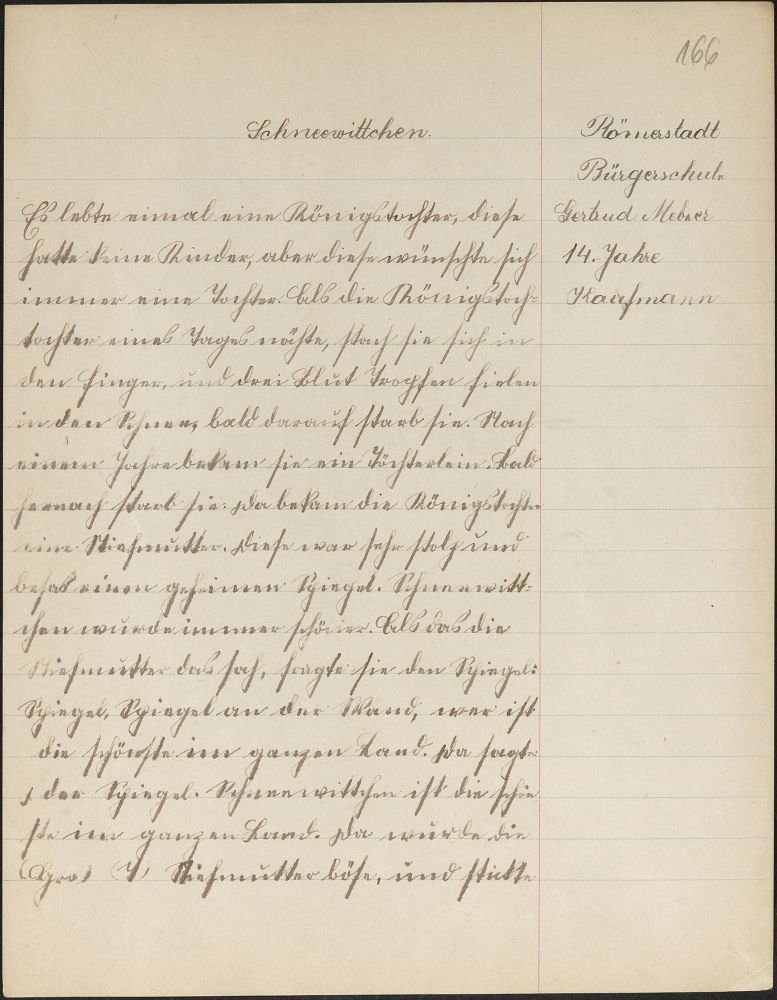 166
Schneewittchen.
Römerstadt
Bürgerschule
Gertrud
14. Jahre
Kaufmann
Es lebte eimal eine Königstochter, diese
hatte keine Kinder, aber diese wünschte sich
immer eine Tochter. Als die Königstoch-
tochter eines Tages nähte, stach sie sich in
den Finger, und drei Blut Tropfen fielen
in den Schnee, bald darauf starb sie. Nach
einem Jahre bekam sie ein Töchterlein. Bald
hernach starb sie. Da bekam die Königstochter
eine Stiefmutter. Diese war sehr stolz und
besaß einen geheimen Spiegel. Schneewitt-
chen wurde immer schöner. Als das die
Stiefmutter das sah, fragte sie den Spiegel:
Spiegel, Spiegel an der Wand, wer ist
die schönste im ganzen Land. Da sagte
der Spiegel. Schneewittchen ist die schön
ste im ganzen Land. Da wurde die
Stiefmutter böse, und stickte